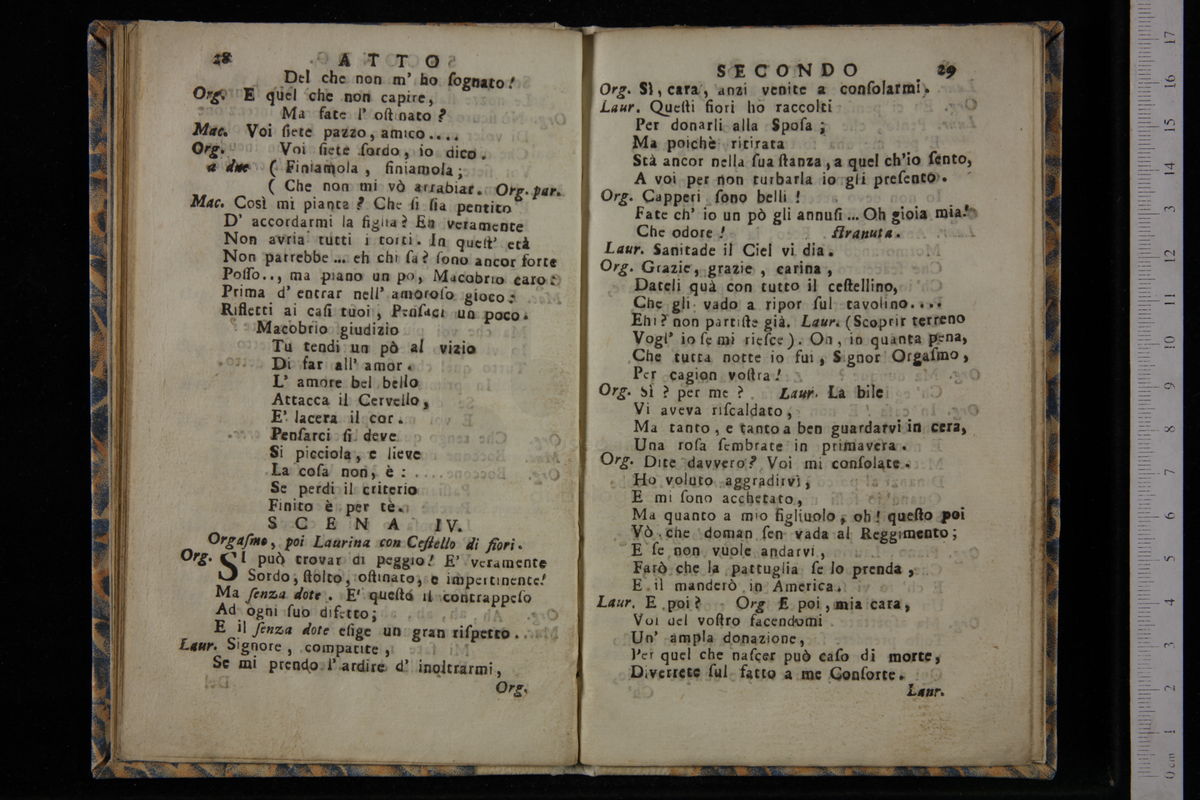 28 ATTO
Del che non m' ho ſognato!
Org. E quel che non capire,
Ma fate l' oſtinato?
Mac. Voi ſiete pazzo, amico....
Org. Voi ſiete ſordo, io dico.
a due ( Finiamola, finiamola;
( Che non mi vò arrabiar. Org. par.
Mac. Così mi pianta? Che ſi ſia pentito
D' accordarmi la figlia? Eh veramente
Non avria tutti i torti. In queſt' età
Non parrebbe... eh chi ſa? ſono ancor forte
Poſſo.., ma piano un po, Macobrio caro:
Prima d' entrar nell' amoroſo gioco:
Rifletti ai caſi tuoi, Penſaci un poco.
Macobrio giudizio
Tu tendi un pò al vizio
Di far all' amor.
L' amore bel bello
Attacca il Cervello,
E' lacera il cor.
Penſarci ſi deve
Si picciola, e lieve
La coſa non, è:
Se perdi il criterio
Finito è per tè.
SCENA IV.
Orgaſmo, poi Laurina con Ceſtello di fiori.
Org. SI può trovar di peggio! E' veramente
Sordo, ſtolto, oſtinato, e impertinente!
Ma ſenza dote. E' queſto il contrappeſo
Ad ogni ſuo difetto;
E il ſenza dote eſige un gran riſpetto.
Laur. Signore, compatite,
Se mi prendo l' ardire d' inoltrarmi,
Org.
SECONDO 29
Org. Sì, cara, anzi venite a conſolarmi.
Laur. Queſti fiori ho raccolti
Per donarli alla Spoſa;
Ma poichè ritirata
Stà ancor nella ſua ſtanza, a quel ch'io ſento,
A voi per non turbarla io gli preſento.
Org. Capperi ſono belli!
Fate ch' io un pò gli annuſi... Oh gioia mia!
Che odore! ſtranuta.
Laur. Sanitade il Ciel vi dia.
Org. Grazie, grazie, carina,
Dateli quà con tutto il ceſtellino,
Che gli vado a ripor ſul tavolino....
Ehi? non partiſte già. Laur. (Scoprir terreno
Vogl' io ſe mi rieſce). Oh, in quanta pena,
Che tutta notte io fui, Signor Orgaſmo,
Per cagion voſtra!
Org. Sì? per me? Laur. La bile
Vi aveva riſcaldato,
Ma tanto, e tanto a ben guardarvi in cera,
Una roſa ſembrate in primavera.
Org. Dite davvero? Voi mi conſolate.
Ho voluto aggradirvi,
E mi ſono acchetato,
Ma quanto a mio figliuolo, oh! queſto poi
Vò che doman ſen vada al Reggimento;
E ſe non vuole andarvi,
Farò che la pattuglia ſe lo prenda,
E il manderò in America.
Laur. E poi? Org E poi, mia cara,
Voi del voſtro facendomi
Un' ampla donazione,
Per quel che naſcer può caſo di morte,
Diverrete ſul fatto a me Conſorte.
Laur.